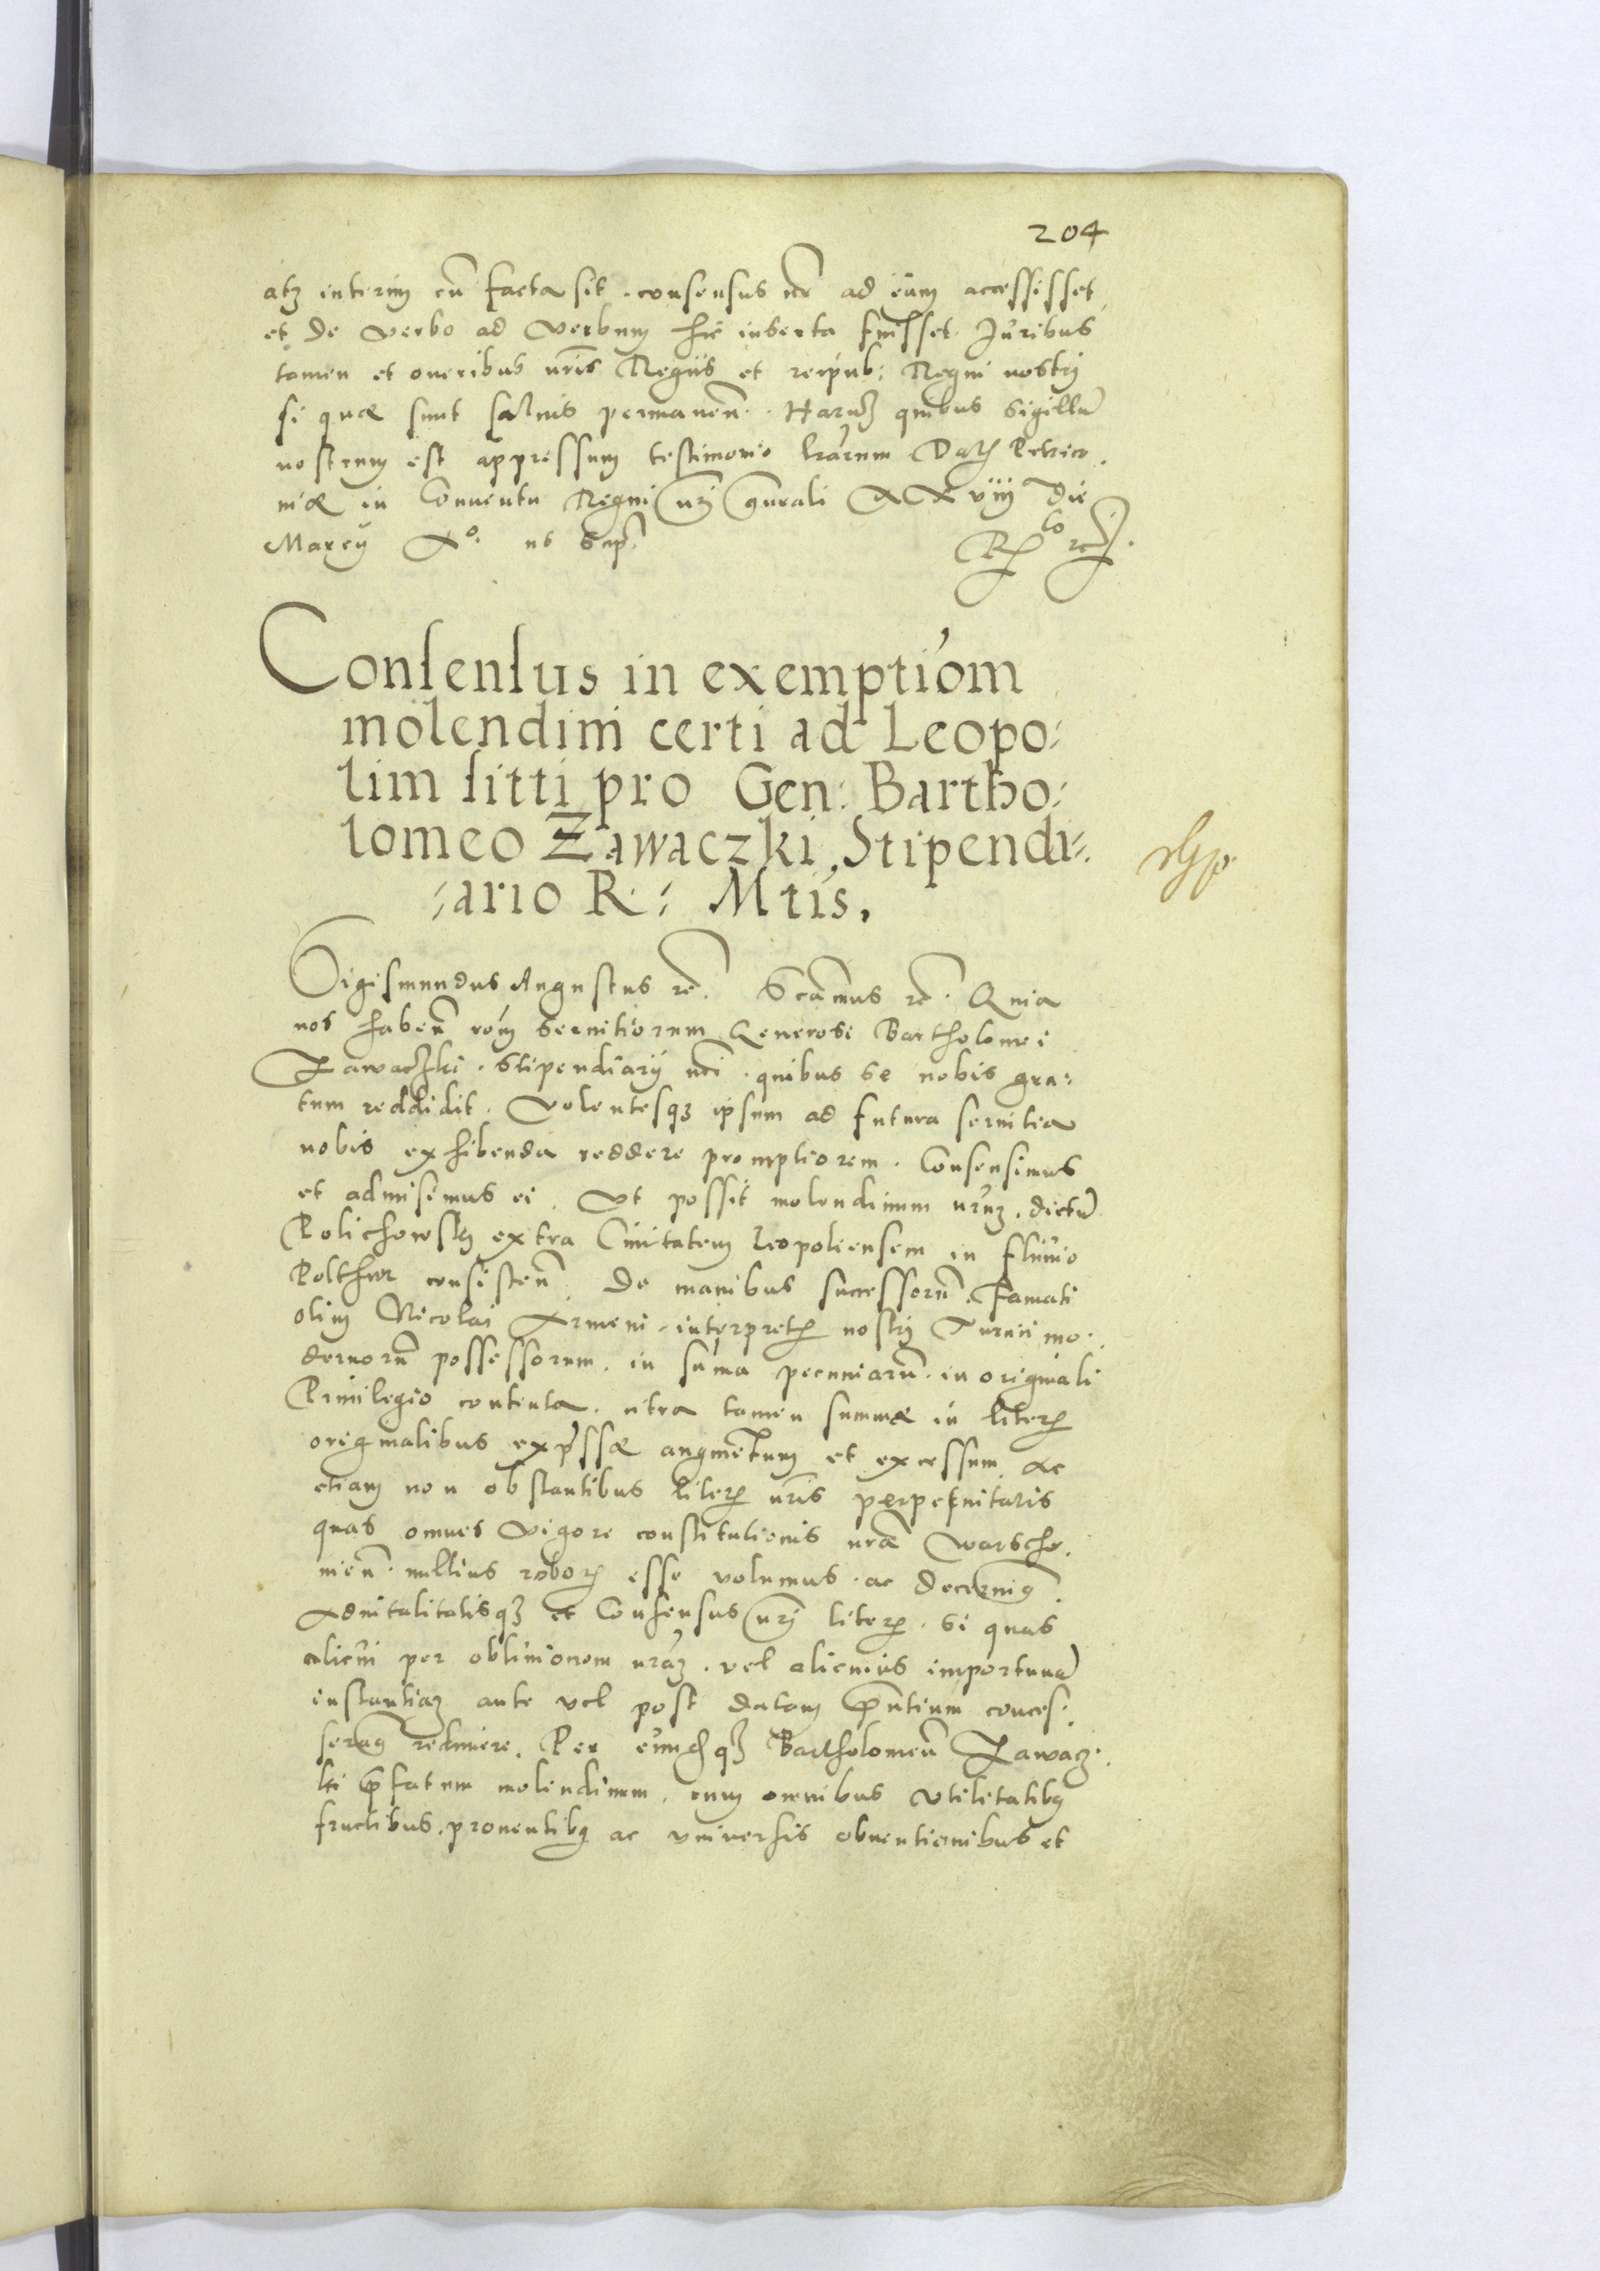 204
atq interim cu facta sit. consensus nr ad eam accessisset
et de verbo ad verbum hic inserta fuisset. Juribus
tamen et oneribus nris Regiis et reipub: Regni nostri
si quæ sunt salvis permanen. Haru quibus sigillu
nostrum est appressum testimonio lrarum Dat Petrico.
niæ in Conventu Regni nri gnrali XXviij die
Marcy Xo. ut supr.
Consensus in exemptiom
molendini certi ad Leopo:
lim sitti pro Gen: Bartho:
lomeo Zawaczki, Stipendi:
:ario R: Mtis,
Sigismundus Augustus re. Scamus re. Quia
nos haben rom servitiorum Generosi Bartholomei
Zawaczki. Stipendiarij nri. quibus se nobis gra:
tum reddidit. Volentesq ipsum ad futura servitia
nobis exhibenda reddere promptiorem. Consensimus
et admisimus ei. Vt possit molendinum nrum. dictu
Polichowsky extra Civitatem Leopoliensem in fluvio
Polthwr consisten. De manibus successoru. Famati
olim Nicolai Armeni. interpret nostri Turcici mo.
dernoru possessorum. in suma pecuniaru. in originali
Privilegio contenta. citra tamen summæ in liter
originalibus expssæ augmentum et excessum. ac
etiam non obstantibus liter nris perpetuitatis
quas omnes vigore constitutionis nræ Warscho.
vien. nullius robor esse volumus. ac decernim.
Advitalitatisq et Consensus nri liter. si quas
alicui per oblivionem nram. vel alicuius importuna
instantiam ante vel post datam pntium conces.
seram redimere. Per eundq Bartholomeu Zawacz.
ki pfatum molendinum. cum omnibus vtilitatibus
fructibus. proventibus ac vniversis obventionibus et